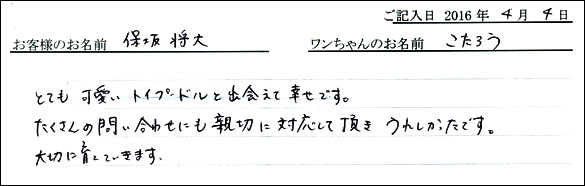 ご記入日 2016 年 4 月 4 日
お客様のお名前 保坂 将大 ワンちゃんのお名前 こたろう
とても 可愛い トイプードルと出会えて幸せです。
たくさんの問い合わせにも親切に対応して頂き うれしかったです。
大切に育てていきます.